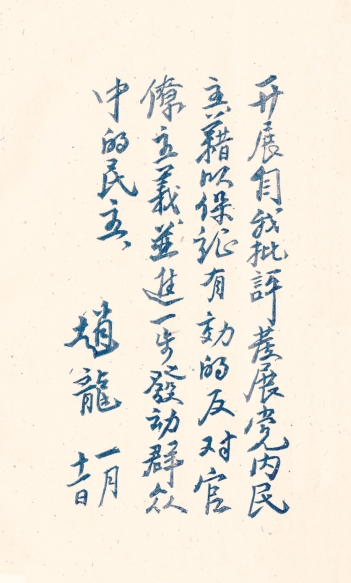 开展自我批評發展党内民
主藉以保証有効的反对官
僚主義並進一步發动群众
中的民主、
趙龍
一月
十一日